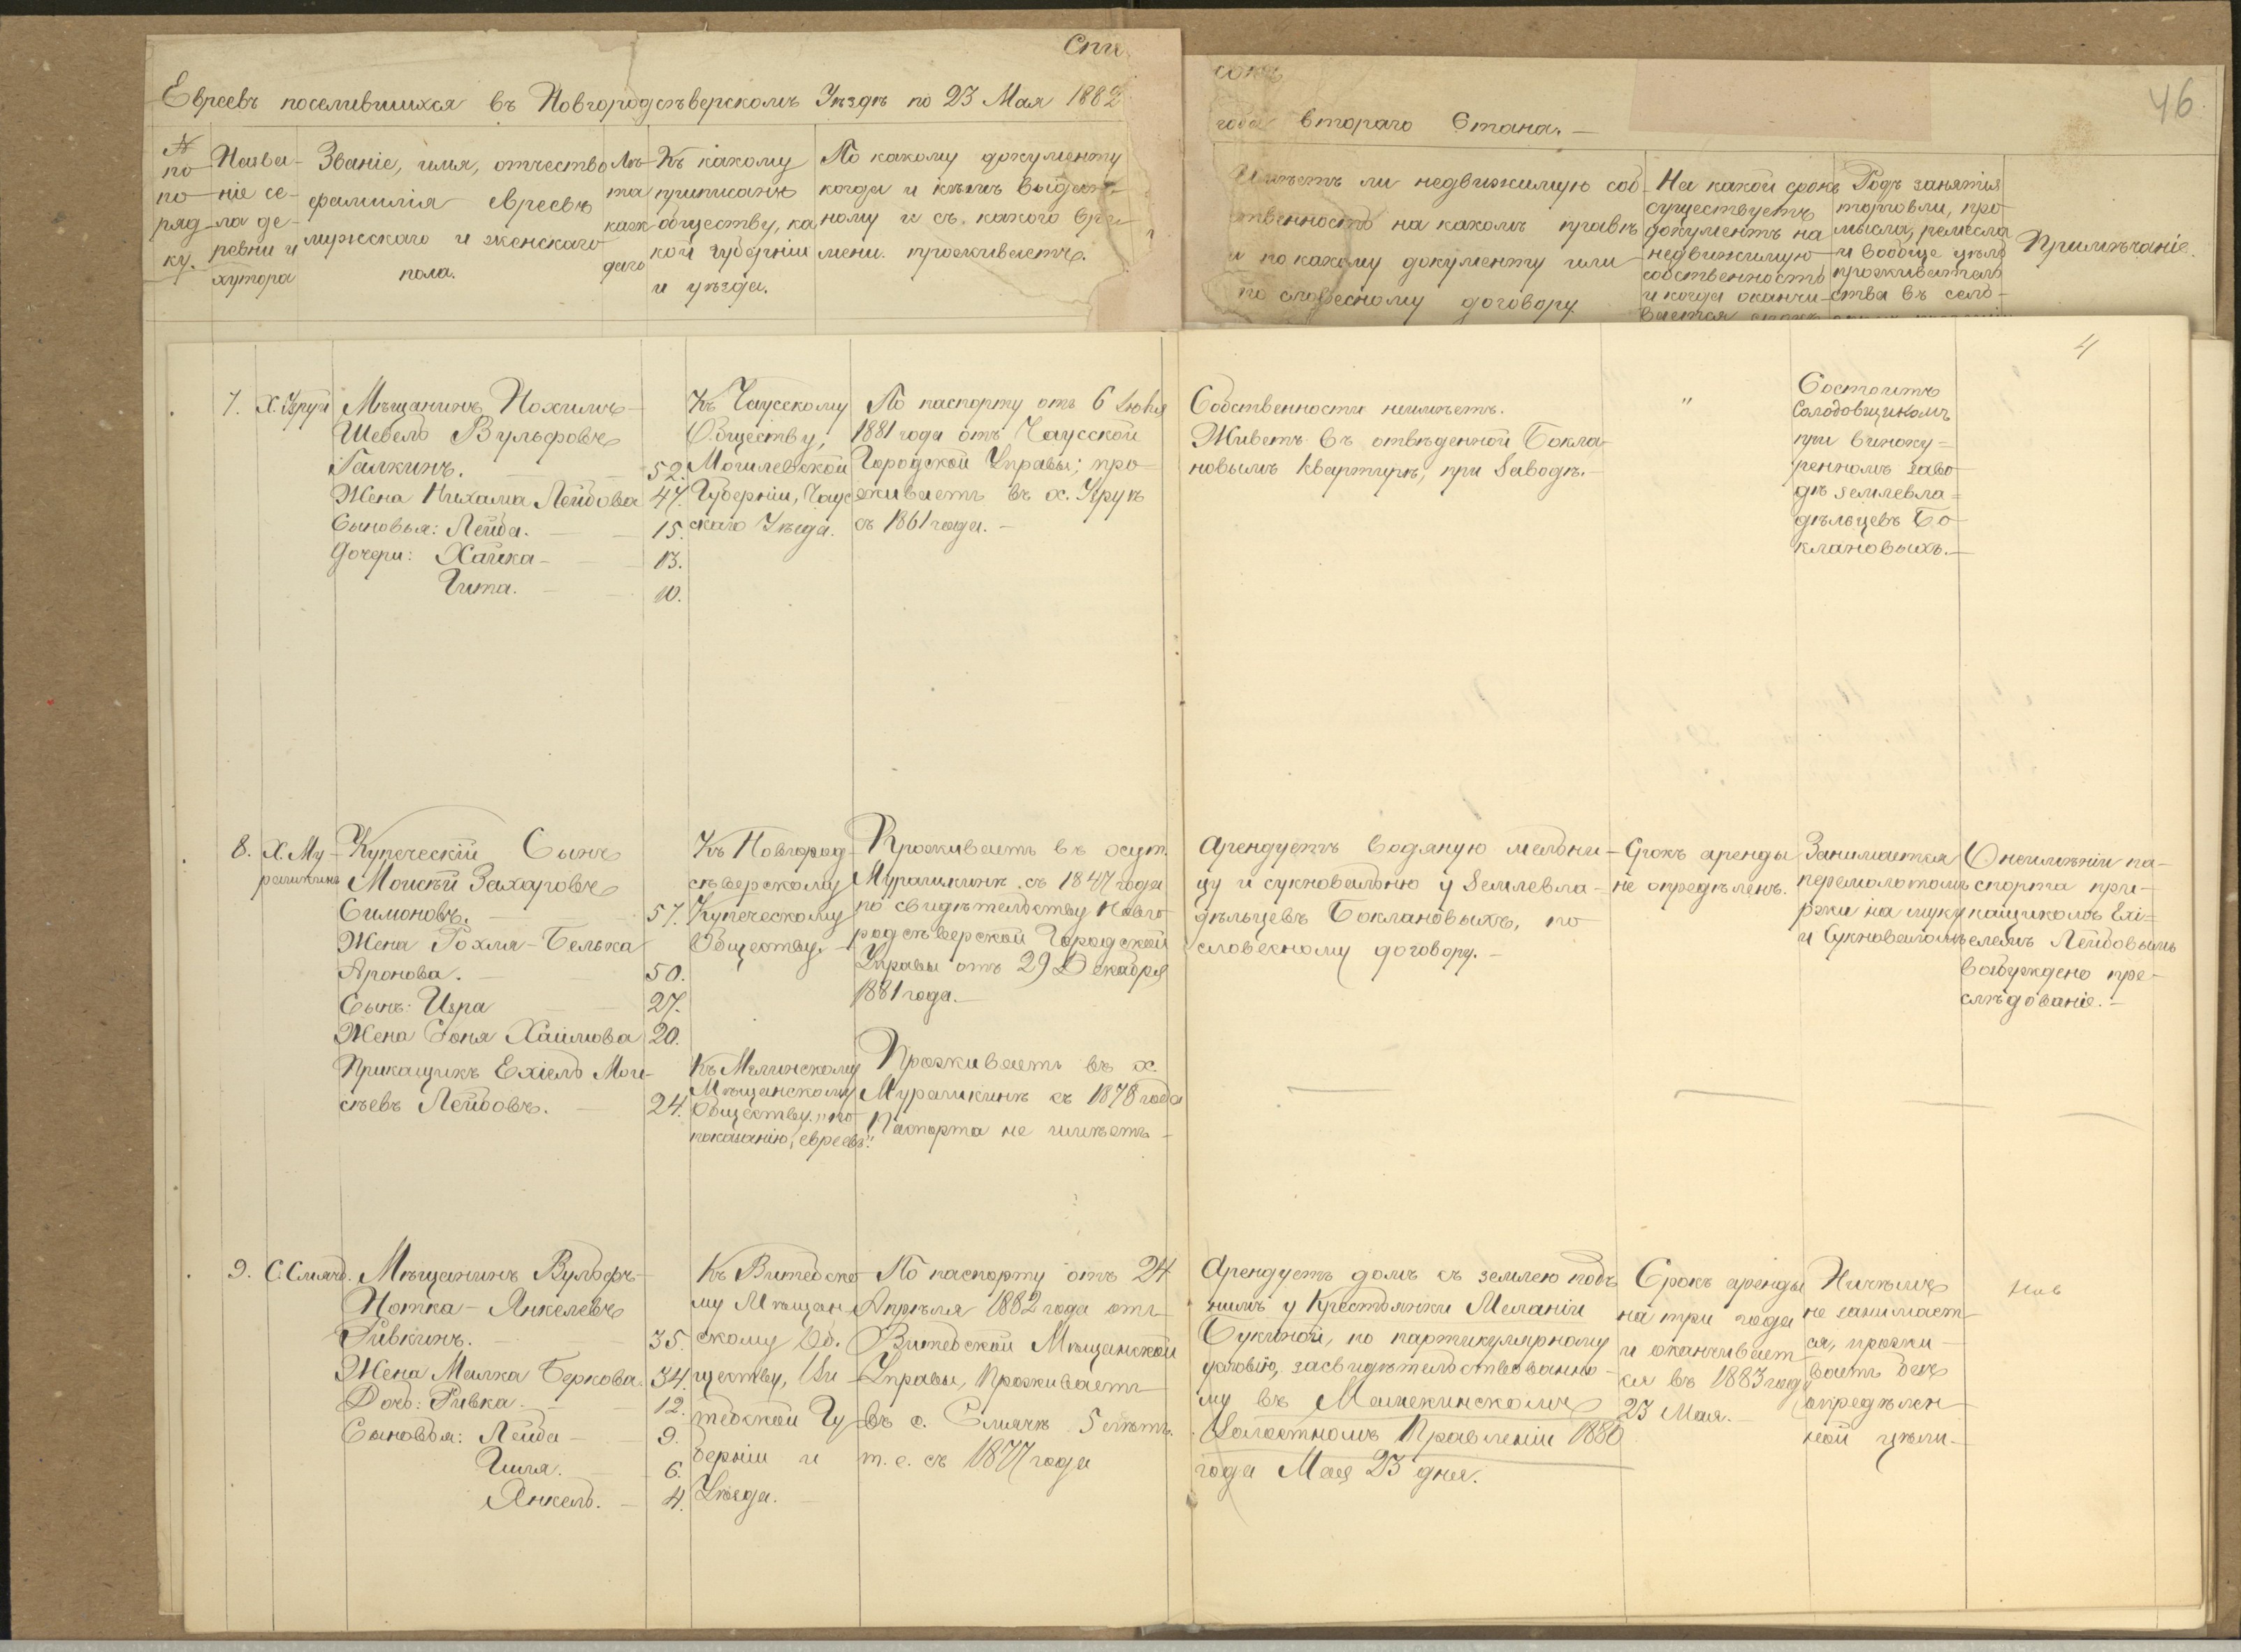 Спи
сокъ
46
Евреевъ поселившихся въ Новгородсѣверскомъ Уѣздѣ по 23 Мая 1882
года втораго Стана. —
№
по
по
ряд
ку.
Назва-
ніе се-
ла де-
ревни и
хутора
Званіе, имя, отчество
фамилія евреевъ
мужскаго и женскаго
пола.
Лѣ-
та
каж
даго
Къ какому
приписанъ
обществу, ка
кой губерніи
и уѣзда.
По какому документу
когда и кѣмъ выдан-
ному и съ какого вре-
мени проживаетъ.
Имѣетъ ли недвижимую соб-
ственность на какомъ правѣ
и по какому документу или
по словесному договору
На какой срокъ
существуетъ
документъ на
недвижимую
собственность
и когда оканчи-
вается срокъ
Родъ занятія
торговли, про
мысла, ремесла
и вообще цѣль
проживатель
ства въ сель-
Примѣчаніе.
4
7.
Х. Узруй
Мѣщанинъ Нохимъ-
Шевель Вульфовъ
Галкинъ. — 52.
Жена Нихама Лейбова 47.
Сыновья: Лейба. — 15.
Дочери: Хайка — 13.
Гита. — 10.
Къ Чаусскому
Обществу,
Могилевской
Губерніи, Чаус
скаго Уѣзда.
По паспорту отъ 6 Іюня
1881 года отъ Чаусской
Городской Управы; про
живаетъ въ х. Узруѣ
съ 1861 года. —
Собственности неимѣетъ.
Живетъ въ отвѣденной Бокла-
новымъ квартирѣ, при Заводѣ. —
"
Состоитъ
Солодовщикомъ
при виноку=
ренномъ заво
дѣ землевла=
дѣльцевъ Бо
клановыхъ. —
8.
Х. Му-
рашкинъ
Купеческій Сынъ
Моисѣй Захаровъ
Симоновъ. — 57.
Жена Рохля-Белька
Аронова. — 50.
Сынъ: Изра 27.
Жена Соня Хаимова 20.
Прикащикъ Ехіель Мои-
сѣевъ Лейбовъ. — 24.
Къ Новгород-
сѣверскому
Купеческому
Обществу. —
Проживаетъ въ хут.
Мурашкинѣ съ 1847 года
по свидѣтельству Новго
родсѣверской Городской
Управы отъ 29 Декабря
1881 года. —
Къ Мглинскому
Мѣщанскому
Обществу, „по
показанію, евреевъ".
Проживаетъ въ х.
Мурашкинѣ съ 1878 года
Паспорта не имѣетъ —
Арендуетъ водяную мельни-
цу и сукновальню у Землевла-
дѣльцевъ Боклановыхъ, по
словесному договору. —
Срокъ аренды
не опредѣленъ.
Занимается
перемолотомъ
ржи на муку
и Сукноваломъ
О неимѣніи па-
спорта при-
кащикомъ Ехі=
елемъ Лейбовымъ
возбуждено пре-
слѣдованіе. —
9.
С. Смячь.
Мѣщанинъ Вульфъ-
Нотка-Янкелевъ
Ривкинъ. — 35.
Жена Малка Беркова. 34.
Дочь: Ривка. — 12.
Сыновья: Лейба — 9.
Гиля. 6.
Янкель. — 4.
Къ Витебско
му Мѣщан
скому Об.
ществу, Ви
тебской Гу
берніи и
Уѣзда. —
По паспорту отъ 24
Апрѣля 1882 года отъ
Витебской Мѣщанской
Управы, Проживаетъ
въ с. Смячѣ 5 лѣтъ.
т. е. съ 1877 года
Арендуетъ домъ съ землею подъ
нимъ у Крестьянки Меланіи
Букиной, по партикулярному
условію, засвидѣтельствованно-
му въ Машекинскомъ
Волостномъ Правленіи 1880
года Мая 23 дня.
Срокъ аренды
на три года
и оканчивает
ся въ 1883 году
23 Мая. —
Ничѣмъ
не занимает-
ся, прожи-
ваетъ безъ
опредѣлен
ной цѣли —